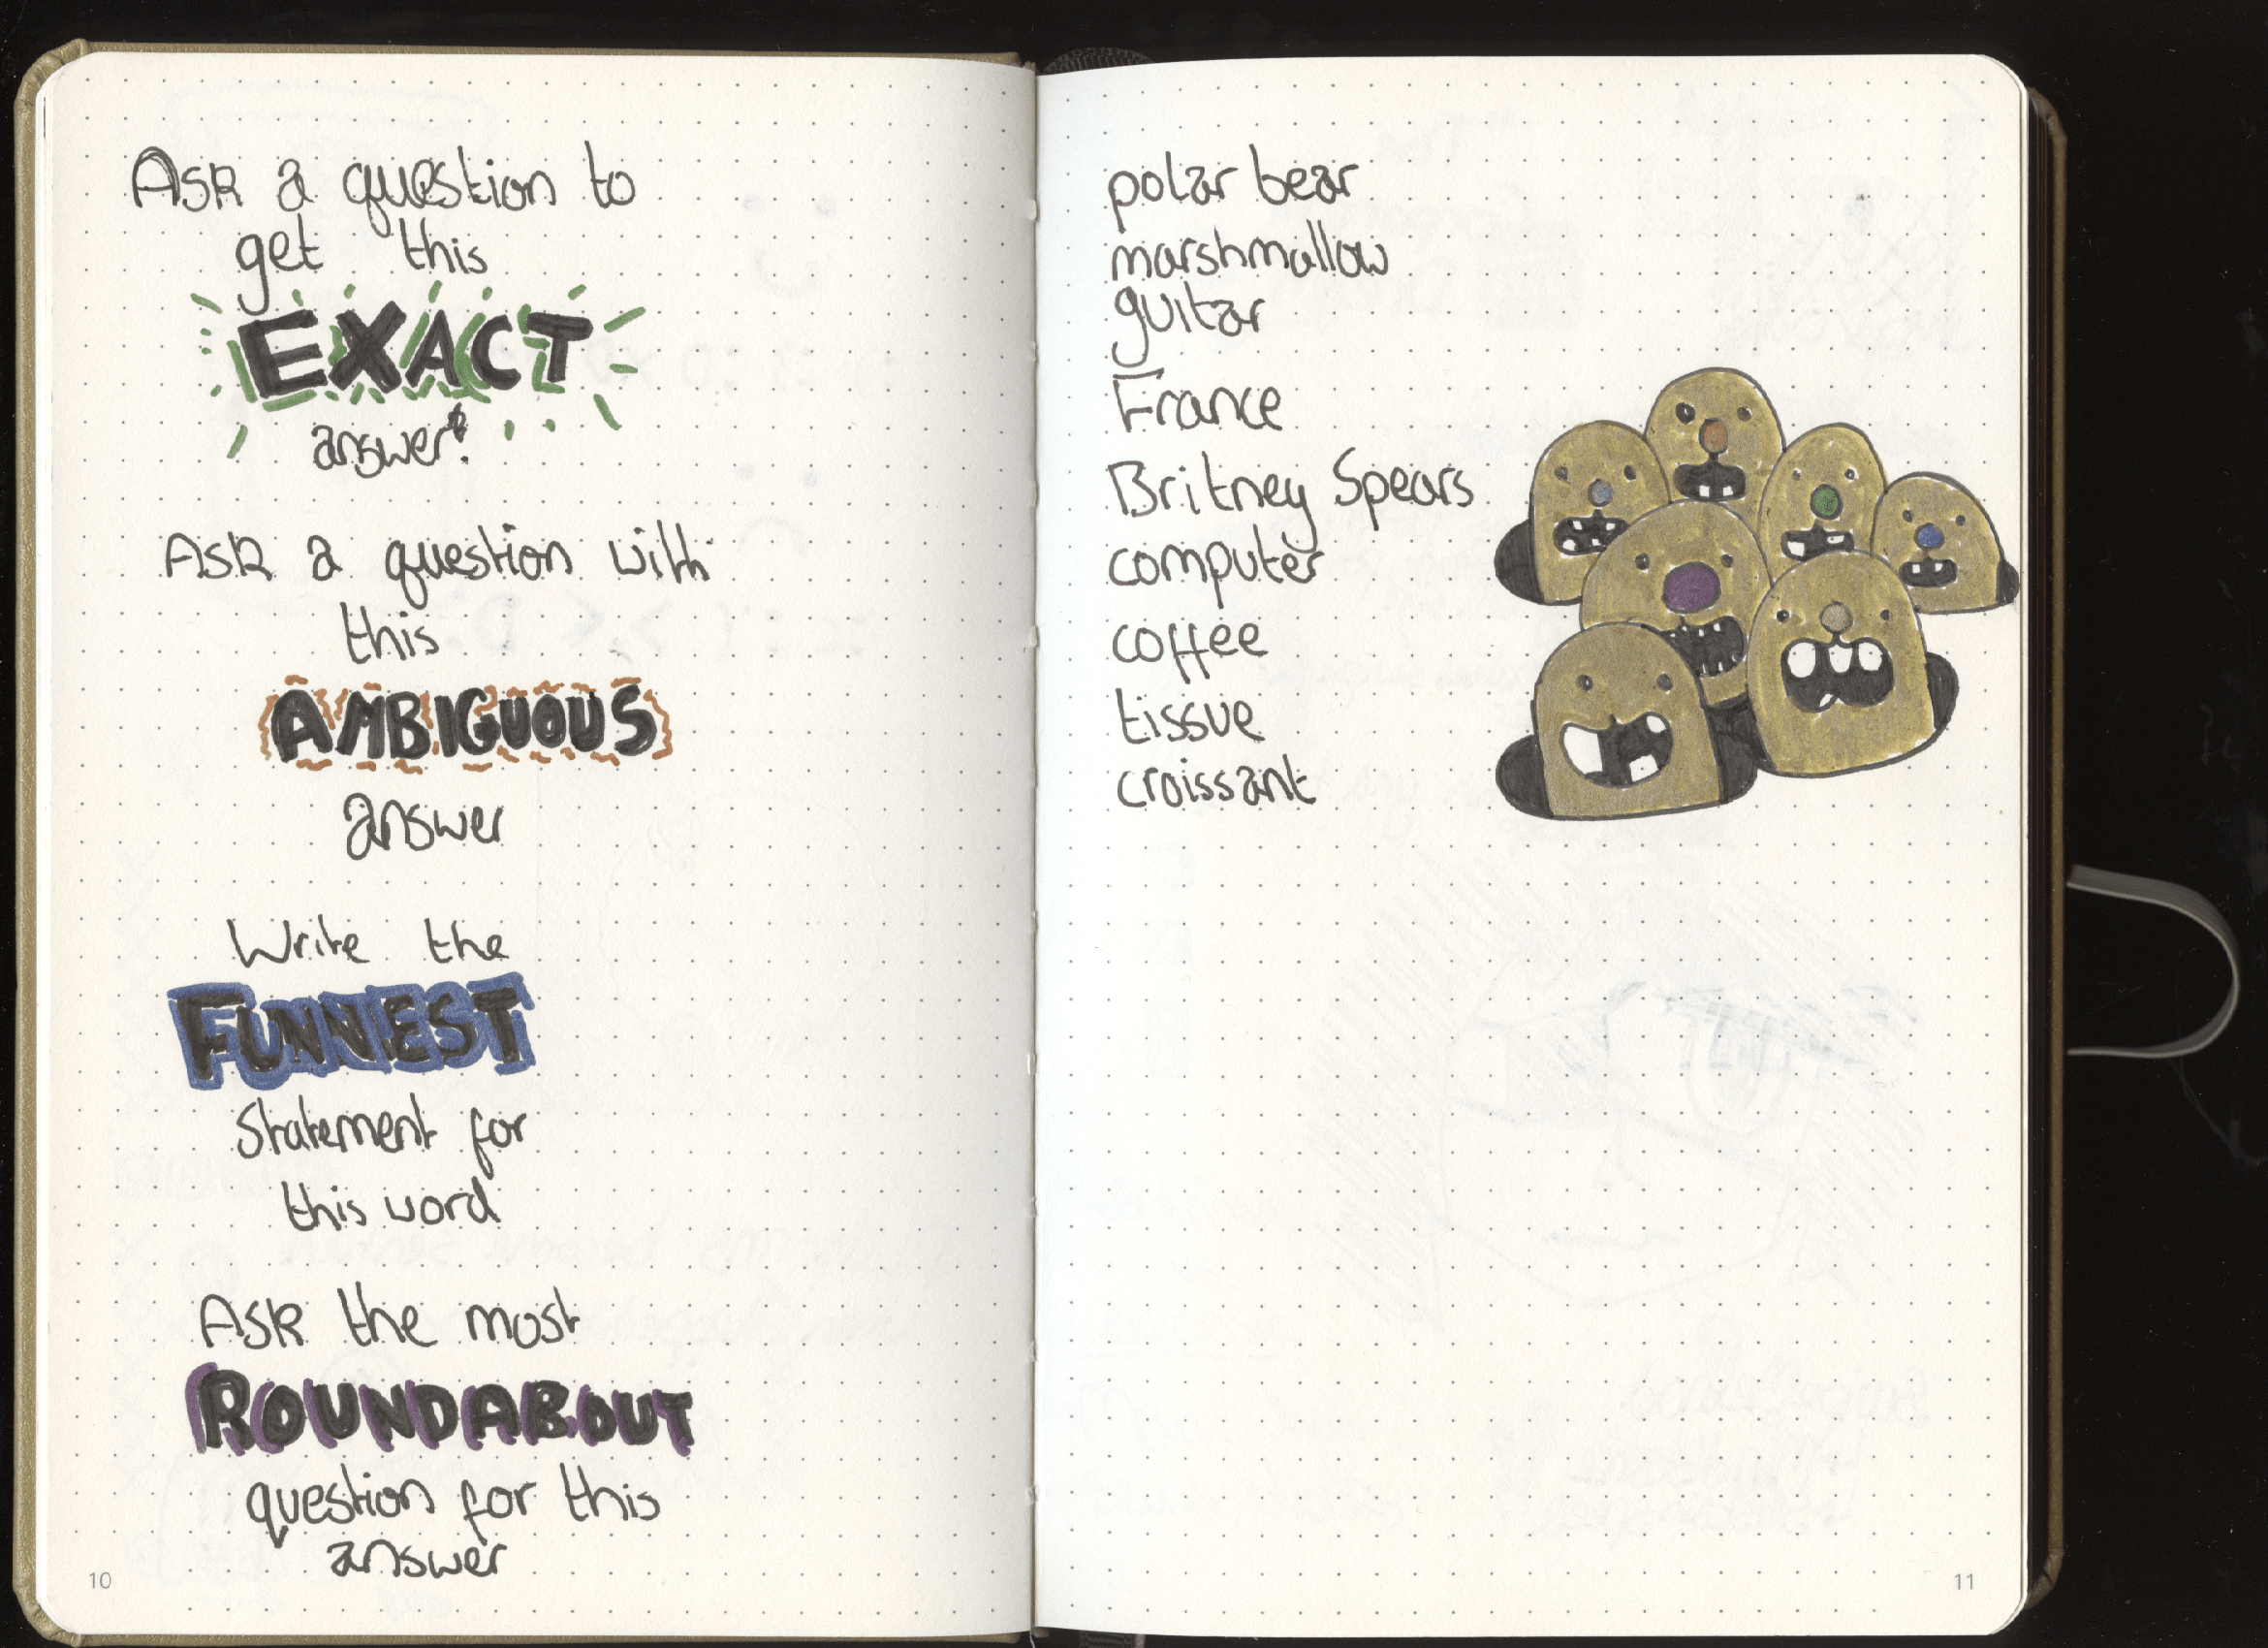 Ask a question to
get this
EXACT
answer.
Ask a question with
this
AMBIGUOUS
answer
Write the
FUNNEST
Statement for
this word
Ask the most
ROUNDABOUT
question for this
answer
10
polar bear
marshmallow
guitar
France
Britney Spears
computer
coffee
tissue
croissant
11